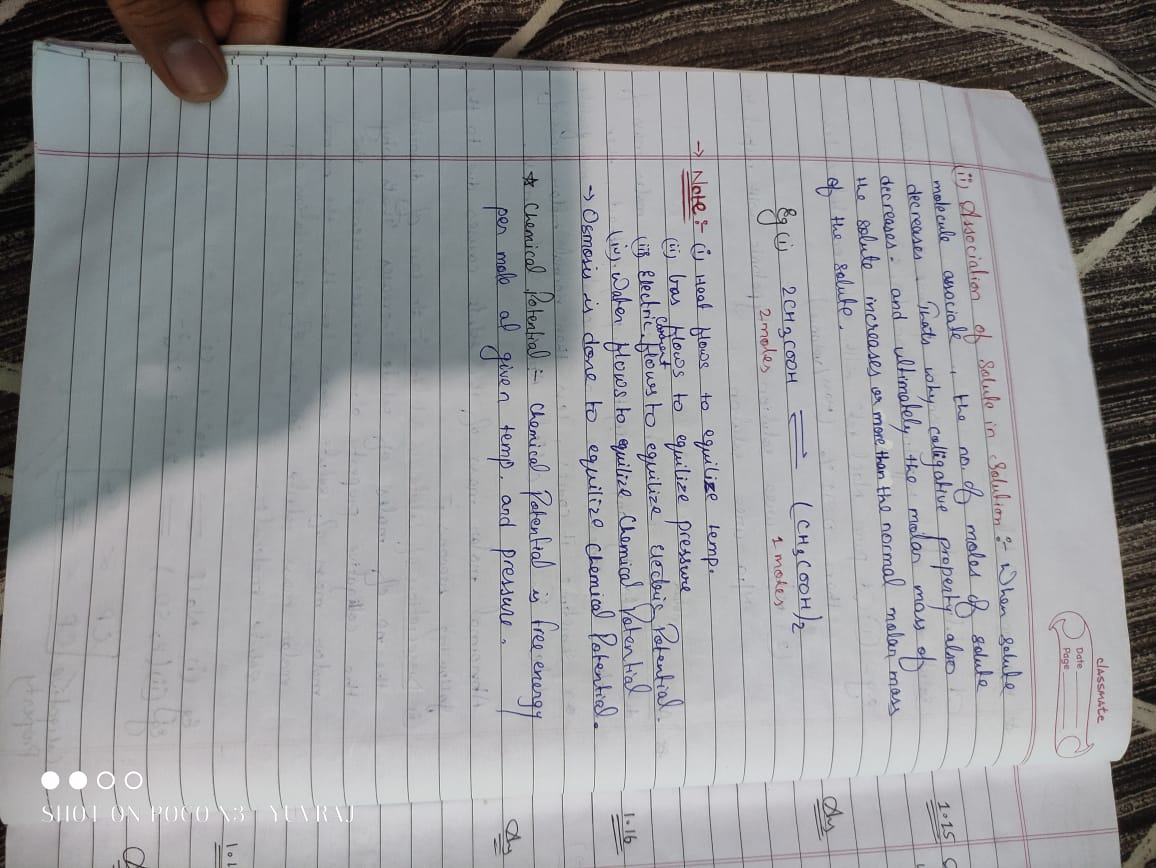 classmate
Date
Page
(ii) Association of Solute in Solution :- When solute
molecule associate, the no. of moles of solute
decreases. Thats why colligative property also
decreases. and ultimately the molar mass of
the solute increases or more than the normal molar mass
of the solute.
Eg (i) 2CH3COOH ⇌ (CH3COOH)2
2 moles 1 moles
→ Note :- (i) Heat flows to equilize temp.
(ii) Gas flows to equilize pressure
(iii) Electric current flows to equilize electric Potential.
(iv) Water flows to equilize Chemical Potential
→ Osmosis is done to equilize chemical Potential.
☆ Chemical Potential :- Chemical Potential is free energy
per mole at given temp. and pressure.
1.15
1.16
SHOT ON POCO X3 - YUVRAJ